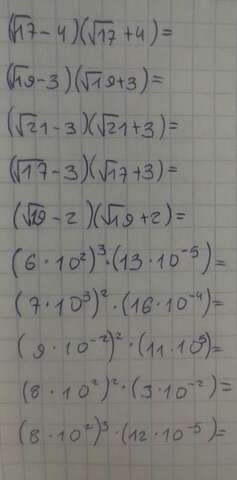 (√17-4)(√17+4)=
(√19-3)(√19+3)=
(√21-3)(√21+3)=
(√17-3)(√17+3)=
(√19-2)(√19+2)=
(6·10²)³·(13·10⁻⁵)=
(7·10³)²·(16·10⁻⁴)=
(9·10⁻²)²·(11·10⁵)=
(8·10²)²·(3·10⁻²)=
(8·10²)³·(12·10⁻⁵)=